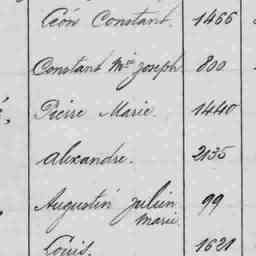 Léon Constant. 1466
Constant Mie Joseph 800
Pierre Marie. 1440
Alexandre. 2135
Augustin Julien 99
Marie
Louis. 1621